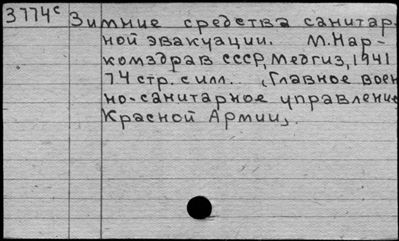 3774с Зимние средства санитар
ной эвакуации. М. Нар-
комздрав СССР, Медгиз, 1941
74 стр. с илл. (Главное воен
но-санитарное управление
Красной Армии).